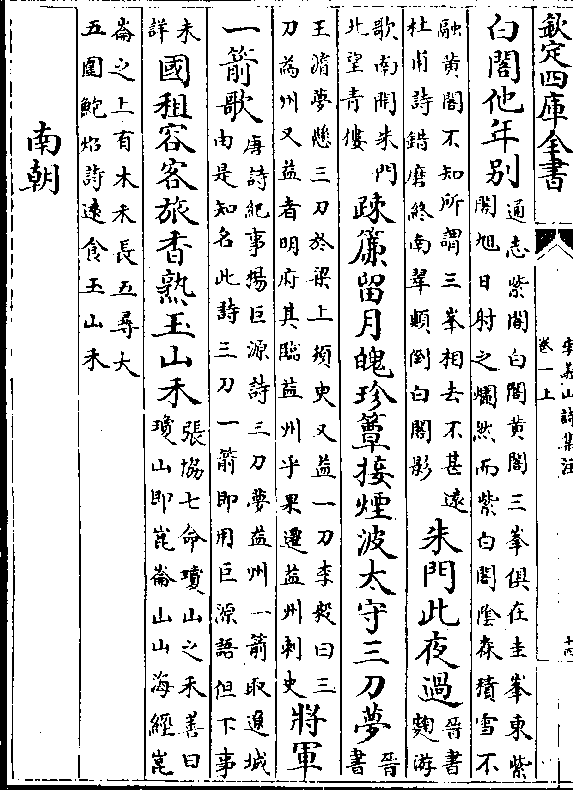 欽定四庫全書
李義山詩集注
卷一上
白閣他年别
通志紫閣白閣黄閣三峯俱在圭峯東紫
閣旭日射之爛然而紫白閣陰森積雪不
融黄閣不知所謂三峯相去不甚遠
杜甫詩錯磨終南翠顛倒白閣影
朱門此夜過
晉書
麴游
歌南開朱門
北望青樓
疎簾留月魄珍簟接煙波太守三刀夢
晉
書
王濬夢懸三刀於梁上須臾又益一刀李毅曰三
刀為州又益者明府其臨益州乎果遷益州刺史
將軍
一箭歌
唐詩紀事楊巨源詩三刀夢益州一箭取遼城
由是知名此詩三刀一箭即用巨源語但下事
未
詳
國租容客旅香熟玉山禾
張協七命瓊山之禾善曰
瓊山即崑崙山山海經崑
崙之上有木禾長五尋大
五圍鮑炤詩遠食玉山禾
南朝